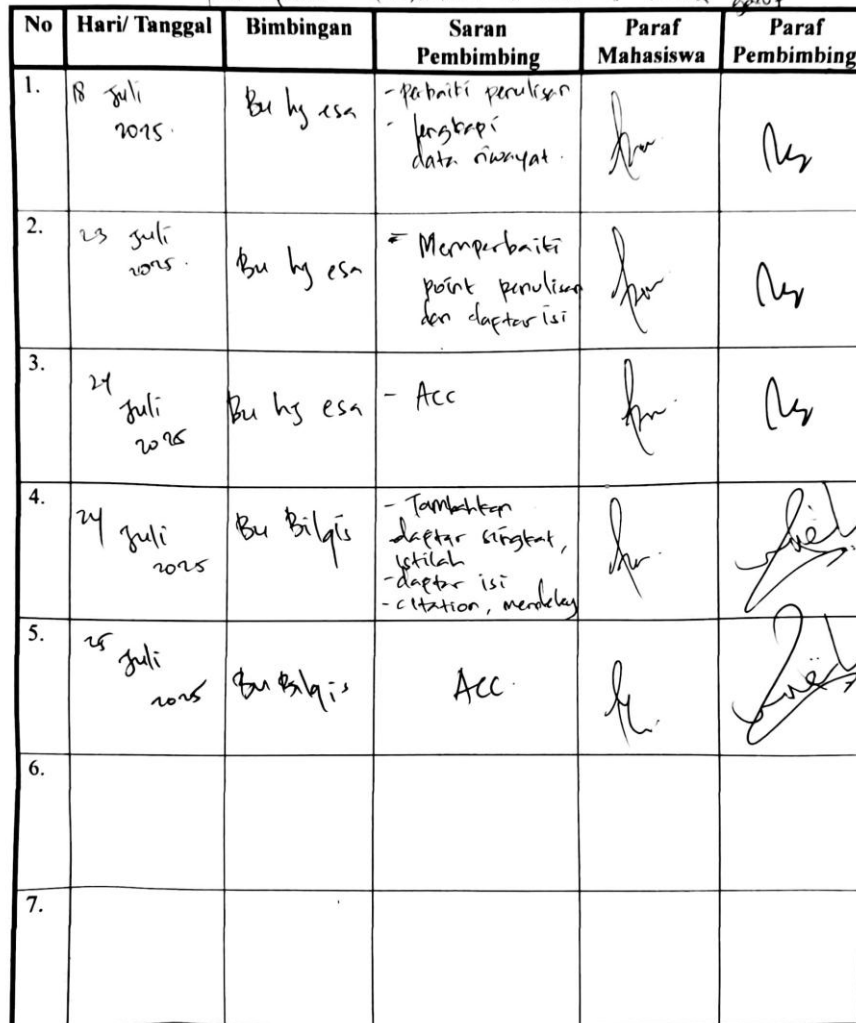 No Hari/ Tanggal Bimbingan Saran Pembimbing Paraf Mahasiswa Paraf Pembimbing
1. 18 Juli 2025. Bu hj esa
- perbaiki penulisan
- lengkapi
data riwayat.
2. 23 Juli 2025. Bu hj esa
- Memperbaiki
point penulisan
dan daftar isi
3. 24 Juli 2025 Bu hj esa - Acc
4. 24 Juli 2025 Bu Bilqis
- Tambahkan
daftar singkat,
istilah
- daftar isi
- citation, mendeley
5. 25 Juli 2025 Bu Bilqis Acc.
6.
7.